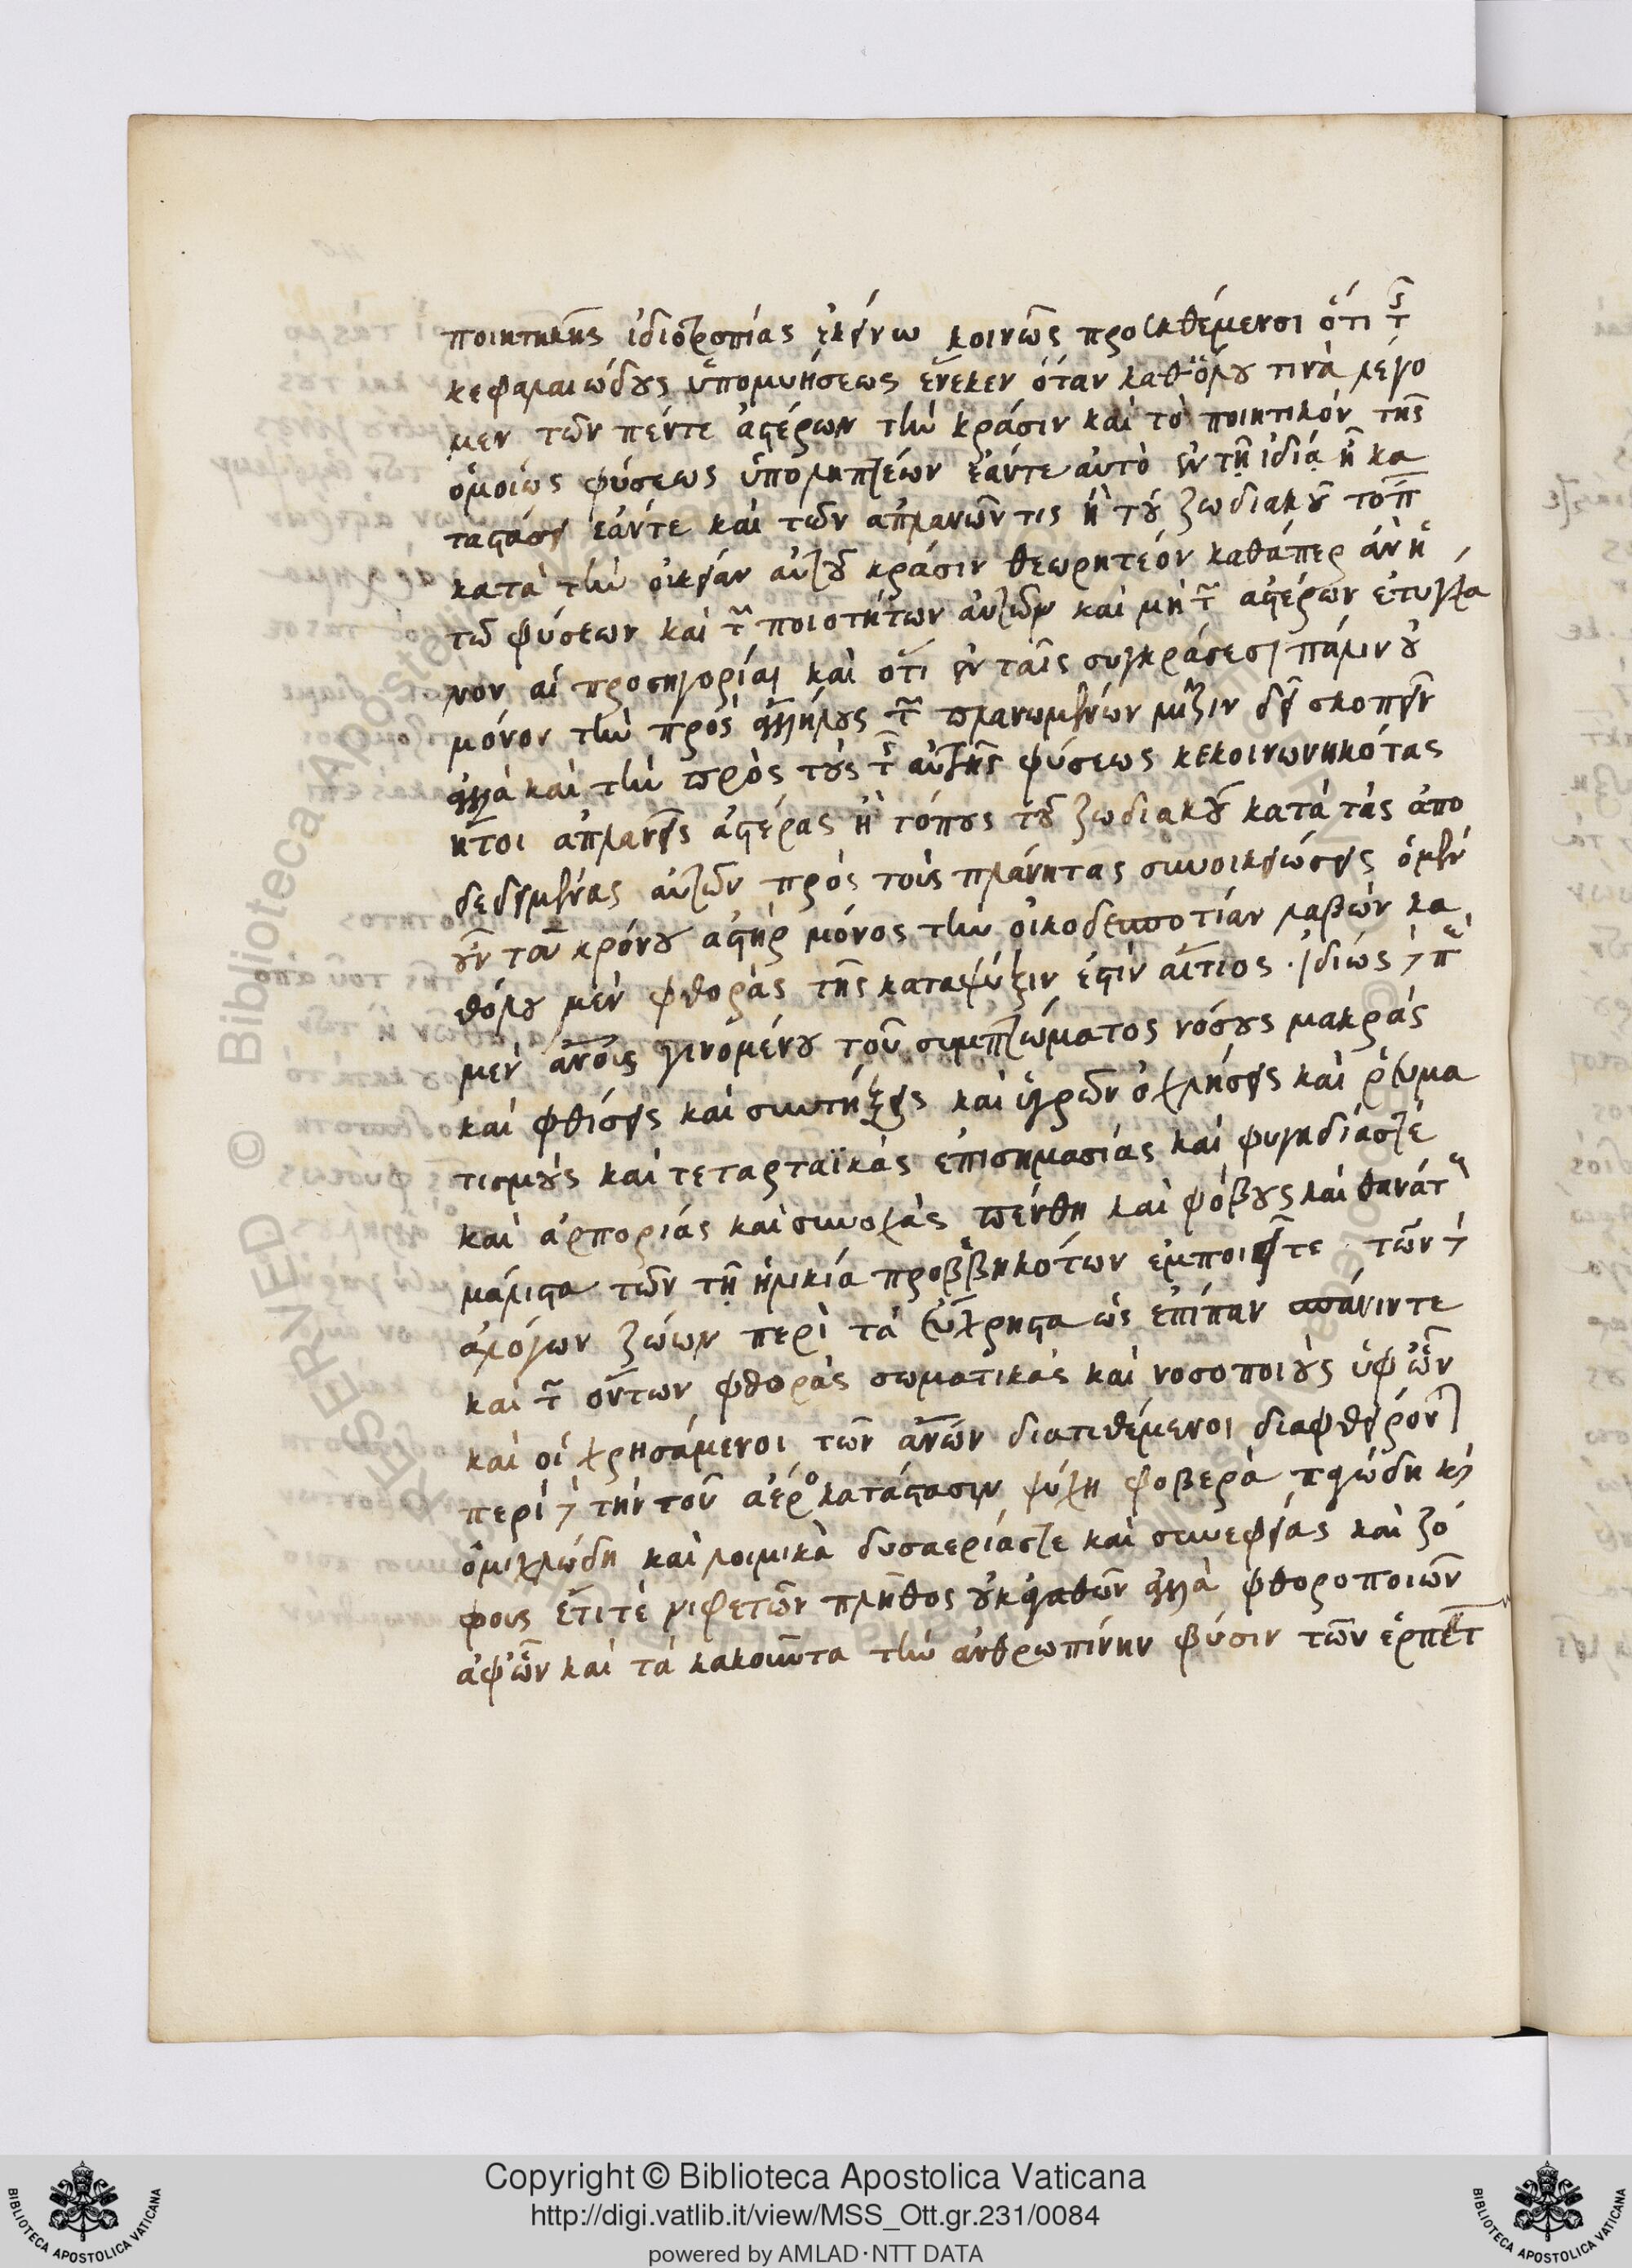 ποιητηκῆς ἰδιοτροπίας ἐκείνω κοινῶς προεκθέμενοι ὅτι τῆς
κεφαλαιώδους ὑπομνήσεως ἕνεκεν ὅταν καθόλου τινὰ λέγο
μεν τῶν πέντε ἀστέρων τὴν κράσιν καὶ τὸ ποιητικὸν τῆς
ὁμοίως φύσεως ὑποληπτέων ἐάντε αὐτὸ ἐν τῇ ἰδίᾳ ἢ κα
ταστάσει ἐάντε καὶ τῶν ἀπλανῶν τις ἢ τοῦ ζωδιακοῦ τόπ
κατὰ τὴν οἰκείαν αὐτοῦ κράσιν θεωρητέον καθάπερ ἂν ἢ
τῶ φύσεων καὶ τῶν ποιοτήτων αὐτῶν καὶ μὴ τῶν ἀστέρων ἐτυγχα
νον αἱ προσηγορίαι καὶ ὅτι ἐν ταῖς συγκράσεσι πάλιν οὐ
μόνον τὴν πρὸς ἀλλήλους τῶν πλανωμένων μίξιν δεῖ σκοπεῖν
ἀλλὰ καὶ τὴν πρὸς τοὺς τῆς αὐτῆς φύσεως κεκοινωνηκότας
ἤτοι ἀπλανεῖς ἀστέρας ἢ τόπους τοῦ ζωδιακοῦ κατὰ τὰς ἀπο
δεδειμένας αὐτῶν πρὸς τοὺς πλάνητας συνοικειώσεις ὁ μὲν
οὖν τοῦ κρόνου ἀστὴρ μόνος τὴν οἰκοδεσποτίαν λαβὼν κα
θόλου μὲν φθορᾶς τῆς καταψύξιν ἐστὶν αἴτιος · ἰδίως δὲ περὶ
μὲν ἀνοις γινομένου τοῦ συμπτώματος νόσους μακρὰς
καὶ φθίσεις καὶ συντήξεις καὶ ὑγρῶν ὀχλήσεις καὶ ῥευμα
τισμοὺς καὶ τεταρταϊκὰς ἐπισημασίας καὶ φυγαδίας τε
καὶ ἀποριάς καὶ συνοχὰς πένθη καὶ φόβους καὶ θανάτους
μάλιστα τῶν τῇ ἡλικία προββηκότων ἐμποιεῖτε · τῶν δὲ
ἀλόγων ζώων περὶ τὰ εὔχρηστα ὡς ἐπίπαν σπάνιντε
καὶ τῶν ὄντων φθορὰς σωματικὰς καὶ νοσοποιοὺς ὑφ' ὧν
καὶ οἱ χρησάμενοι τῶν ἀνων διατιθέμενοι διαφθείρονται
περὶ δὲ τὴν τοῦ ἀέρος κατάστασιν ψύχη φοβερὰ παγώδη καὶ
ὁμιχλώδη καὶ λοιμικὰ δυσαερίας τε καὶ συνεφείας καὶ ζό
φους ἔτι τὲ νιφετῶν πλῆθος οὐκ ἀγαθῶν ἀλλὰ φθοροποιῶν
ἀφ' ὧν καὶ τὰ κακοῦντα τὴν ἀνθρωπίνην φύσιν τῶν ἑρπετ
RESERVED © Biblioteca Apostolica Vaticana
Copyright © Biblioteca Apostolica Vaticana
http://digi.vatlib.it/view/MSS_Ott.gr.231/0084
powered by AMLAD·NTT DATA
BIBLIOTECA APOSTOLICA VATICANA
BIBLIOTECA APOSTOLICA VATICANA